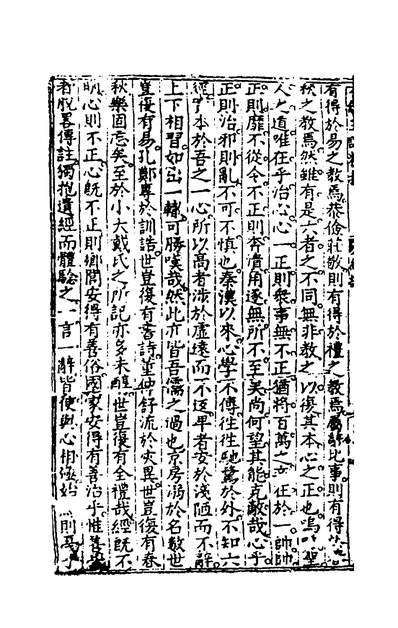 有得於易之教焉恭儉莊敬則有得於禮之教焉屬辭比事則有得於春
秋之教焉然雖有是六者之不同無非教之以復其本心之正也嗚呼聖
人之道唯在乎治心心一正則衆事無不正猶將百萬之卒在於一帥帥
正則靡不從令不正則奔潰角逐無所不至矣尚何望其能克敵哉心乎
正則治邪則亂不可不慎也秦漢以來心學不傳往往馳騖於外不知六
經實本於吾之一心所以高者涉於虛遠而不返卑者安於淺陋而不辭
上下相習如出一轍可勝嘆哉然此亦皆吾儒之過也京房溺於名數世
豈復有易孔鄭專於訓詁世豈復有書詩董仲舒流於災異世豈復有春
秋樂固亡矣至於小大戴氏之所記亦多未醇世豈復有全禮哉經既不
明心則不正心既不正則鄉閭安得有善俗國家安得有善治乎惟善學
者脫畧傳註獨抱遺經而體驗之一言一辭皆使與心相涵始則戛乎